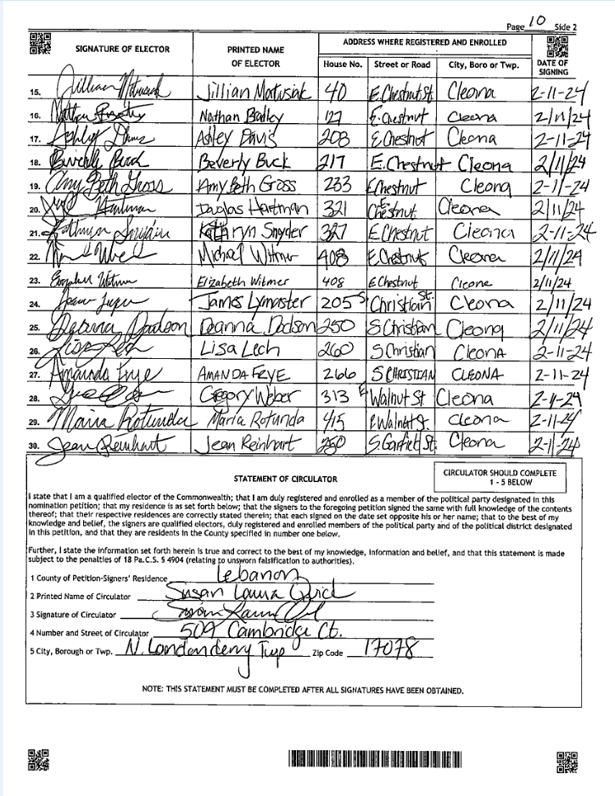 Page 10 Side 2
SIGNATURE OF ELECTOR PRINTED NAME OF ELECTOR ADDRESS WHERE REGISTERED AND ENROLLED DATE OF SIGNING
House No. Street or Road City, Boro or Twp.
15. Jillian Matusiak 40 E. Chestnut St. Cleona 2-11-24
16. Nathan 127 E. Chestnut Cleona 2/11/24
17. Ashley Davis 208 E Chestnut Cleona 2-11-24
18. Beverly Buck 217 E. Chestnut Cleona 2/11/24
19. Amy Beth Gross Amy Beth Gross 233 E Chestnut Cleona 2-11-24
20. Douglas Hartman 321 E. Chestnut Cleona 2/11/24
21. Kathryn Snyder Kathryn Snyder 327 E Chestnut Cleona 2-11-24
22. Michael Witmer 408 E Chestnut Cleona 2/11/24
23. Elizabeth Witmer Elizabeth Witmer 408 E Chestnut Cleona 2/11/24
24. James 205 S Christian St. Cleona 2/11/24
25. Deanna Dodson Deanna Dodson 250 S Christian Cleona 2/11/24
26. Lisa Lech 260 S Christian Cleona 2-11-24
27. Amanda Frye AMANDA FRYE 266 S CHRISTIAN CLEONA 2-11-24
28. Gregory Weber 313 E Walnut St Cleona
29. Maria Rotunda Maria Rotunda 415 E Walnut St. Cleona 2-11-24
30. Jean Reinhart Jean Reinhart 250 S. Garfield St. Cleona 2-11-24
STATEMENT OF CIRCULATOR
CIRCULATOR SHOULD COMPLETE
1 - 5 BELOW
I state that I am a qualified elector of the Commonwealth; that I am duly registered and enrolled as a member of the political party designated in this
nomination petition; that my residence is as set forth below; that the signers to the foregoing petition signed the same with full knowledge of the contents
thereof; that their respective residences are correctly stated therein; that each signed on the date set opposite his or her name; that to the best of my
knowledge and belief, the signers are qualified electors, duly registered and enrolled members of the political party and of the political district designated
in this petition, and that they are residents in the County specified in number one below.
Further, I state the information set forth herein is true and correct to the best of my knowledge, information and belief, and that this statement is made
subject to the penalties of 18 Pa.C.S. § 4904 (relating to unsworn falsification to authorities).
1 County of Petition-Signers' Residence Lebanon
2 Printed Name of Circulator Susan Laura
3 Signature of Circulator Susan Laura
4 Number and Street of Circulator 509 Cambridge Ct.
5 City, Borough or Twp. N. Londonderry Twp Zip Code 17078
NOTE: THIS STATEMENT MUST BE COMPLETED AFTER ALL SIGNATURES HAVE BEEN OBTAINED.